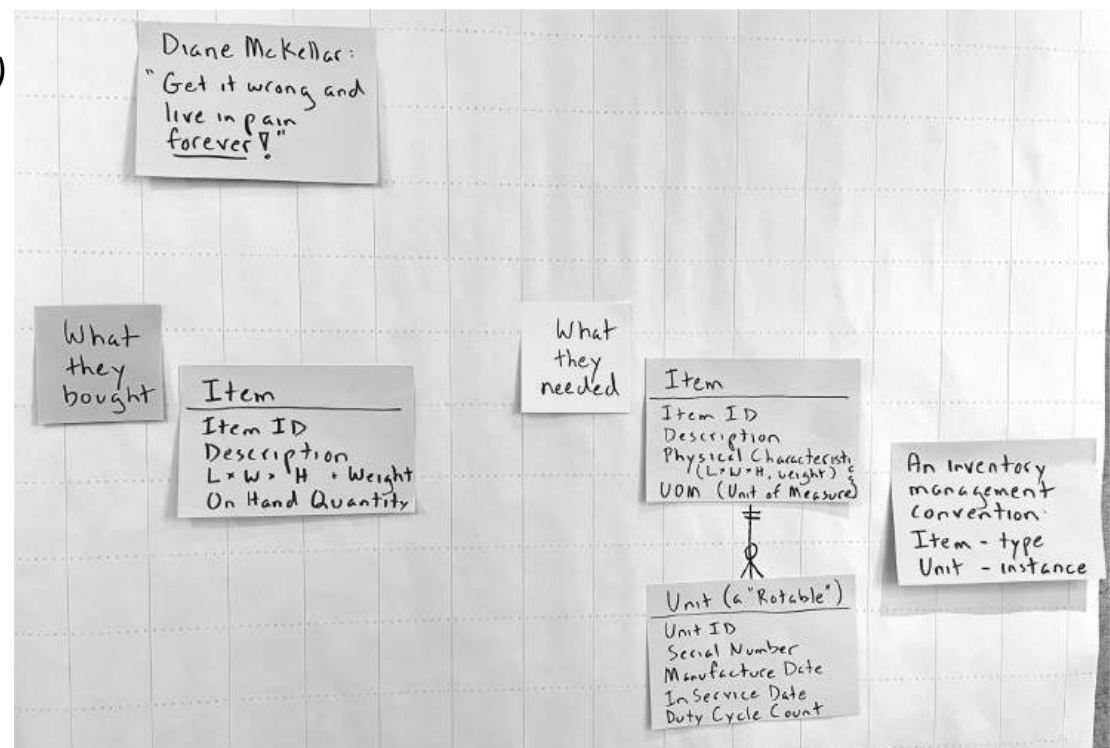 )
Diane McKellar:
"Get it wrong and
live in pain
forever!"
What
they
bought
Item
Item ID
Description
L × W × H + Weight
On Hand Quantity
What
they
needed
Item
Item ID
Description
Physical Characterist
(L×W×H, weight)
UOM (Unit of Measure)
Unit (a "Rotable")
Unit ID
Serial Number
Manufacture Date
In Service Date
Duty Cycle Count
An inventory
management
convention:
Item - type
Unit - instance